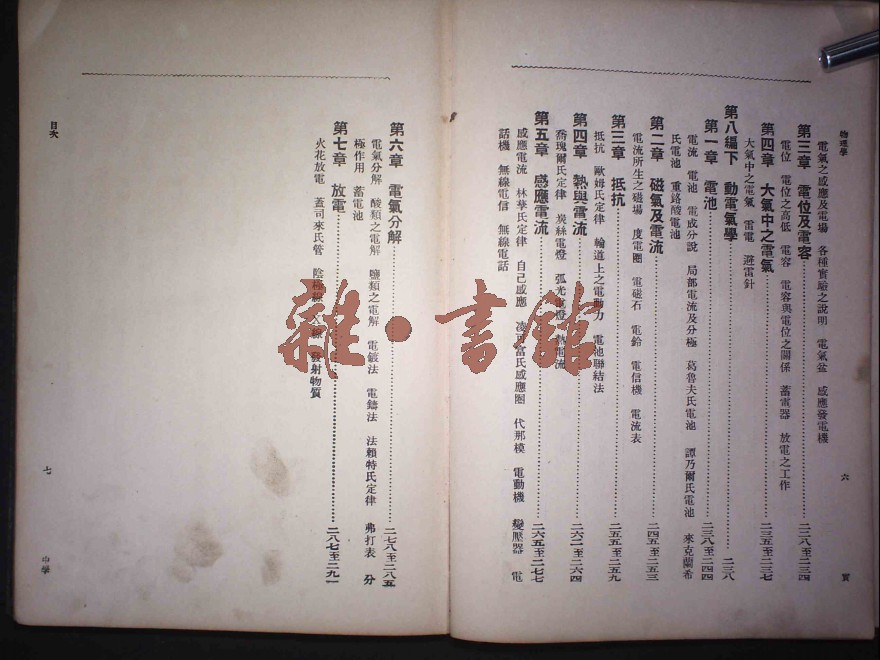 物理學
六
實
電氣之感應及電場 各種實驗之說明 電氣盆 感應發電機
第三章 電位及電容 二二八至二三四
電位 電位之高低 電容 電容與電位之關係 蓄電器 放電之工作
第四章 大氣中之電氣 二三五至二三七
大氣中之電氣 雷電 避雷針
第八編下 動電氣學 二三八
第一章 電池 二三八至二四四
電流 電池 電成分說 局部電流及分極 葛魯夫氏電池 譚乃爾氏電池 來克蘭希
氏電池 重鉻酸電池
第二章 磁氣及電流 二四五至二五三
電流所生之磁場 度電圈 電磁石 電鈴 電信機 電流表
第三章 抵抗 二五五至二五九
抵抗 歐姆氏定律 輪道上之電動力 電池聯結法
第四章 熱與電流 二六二至二六四
喬瑰爾氏定律 炭絲電燈 弧光電燈 熱電流
第五章 感應電流 二六五至二七七
感應電流 林華氏定律 自己感應 凌可富氏感應圈 代那模 電動機 變壓器 電
話機 無線電信 無線電話
第六章 電氣分解 二七八至二八五
電氣分解 酸類之電解 鹽類之電解 電鍍法 電鑄法 法賴特氏定律 弗打表 分
極作用 蓄電池
第七章 放電 二八七至二九一
火花放電 蓋司來氏管 陰極線 X線 發射物質
目次
七
中學
雜·書館